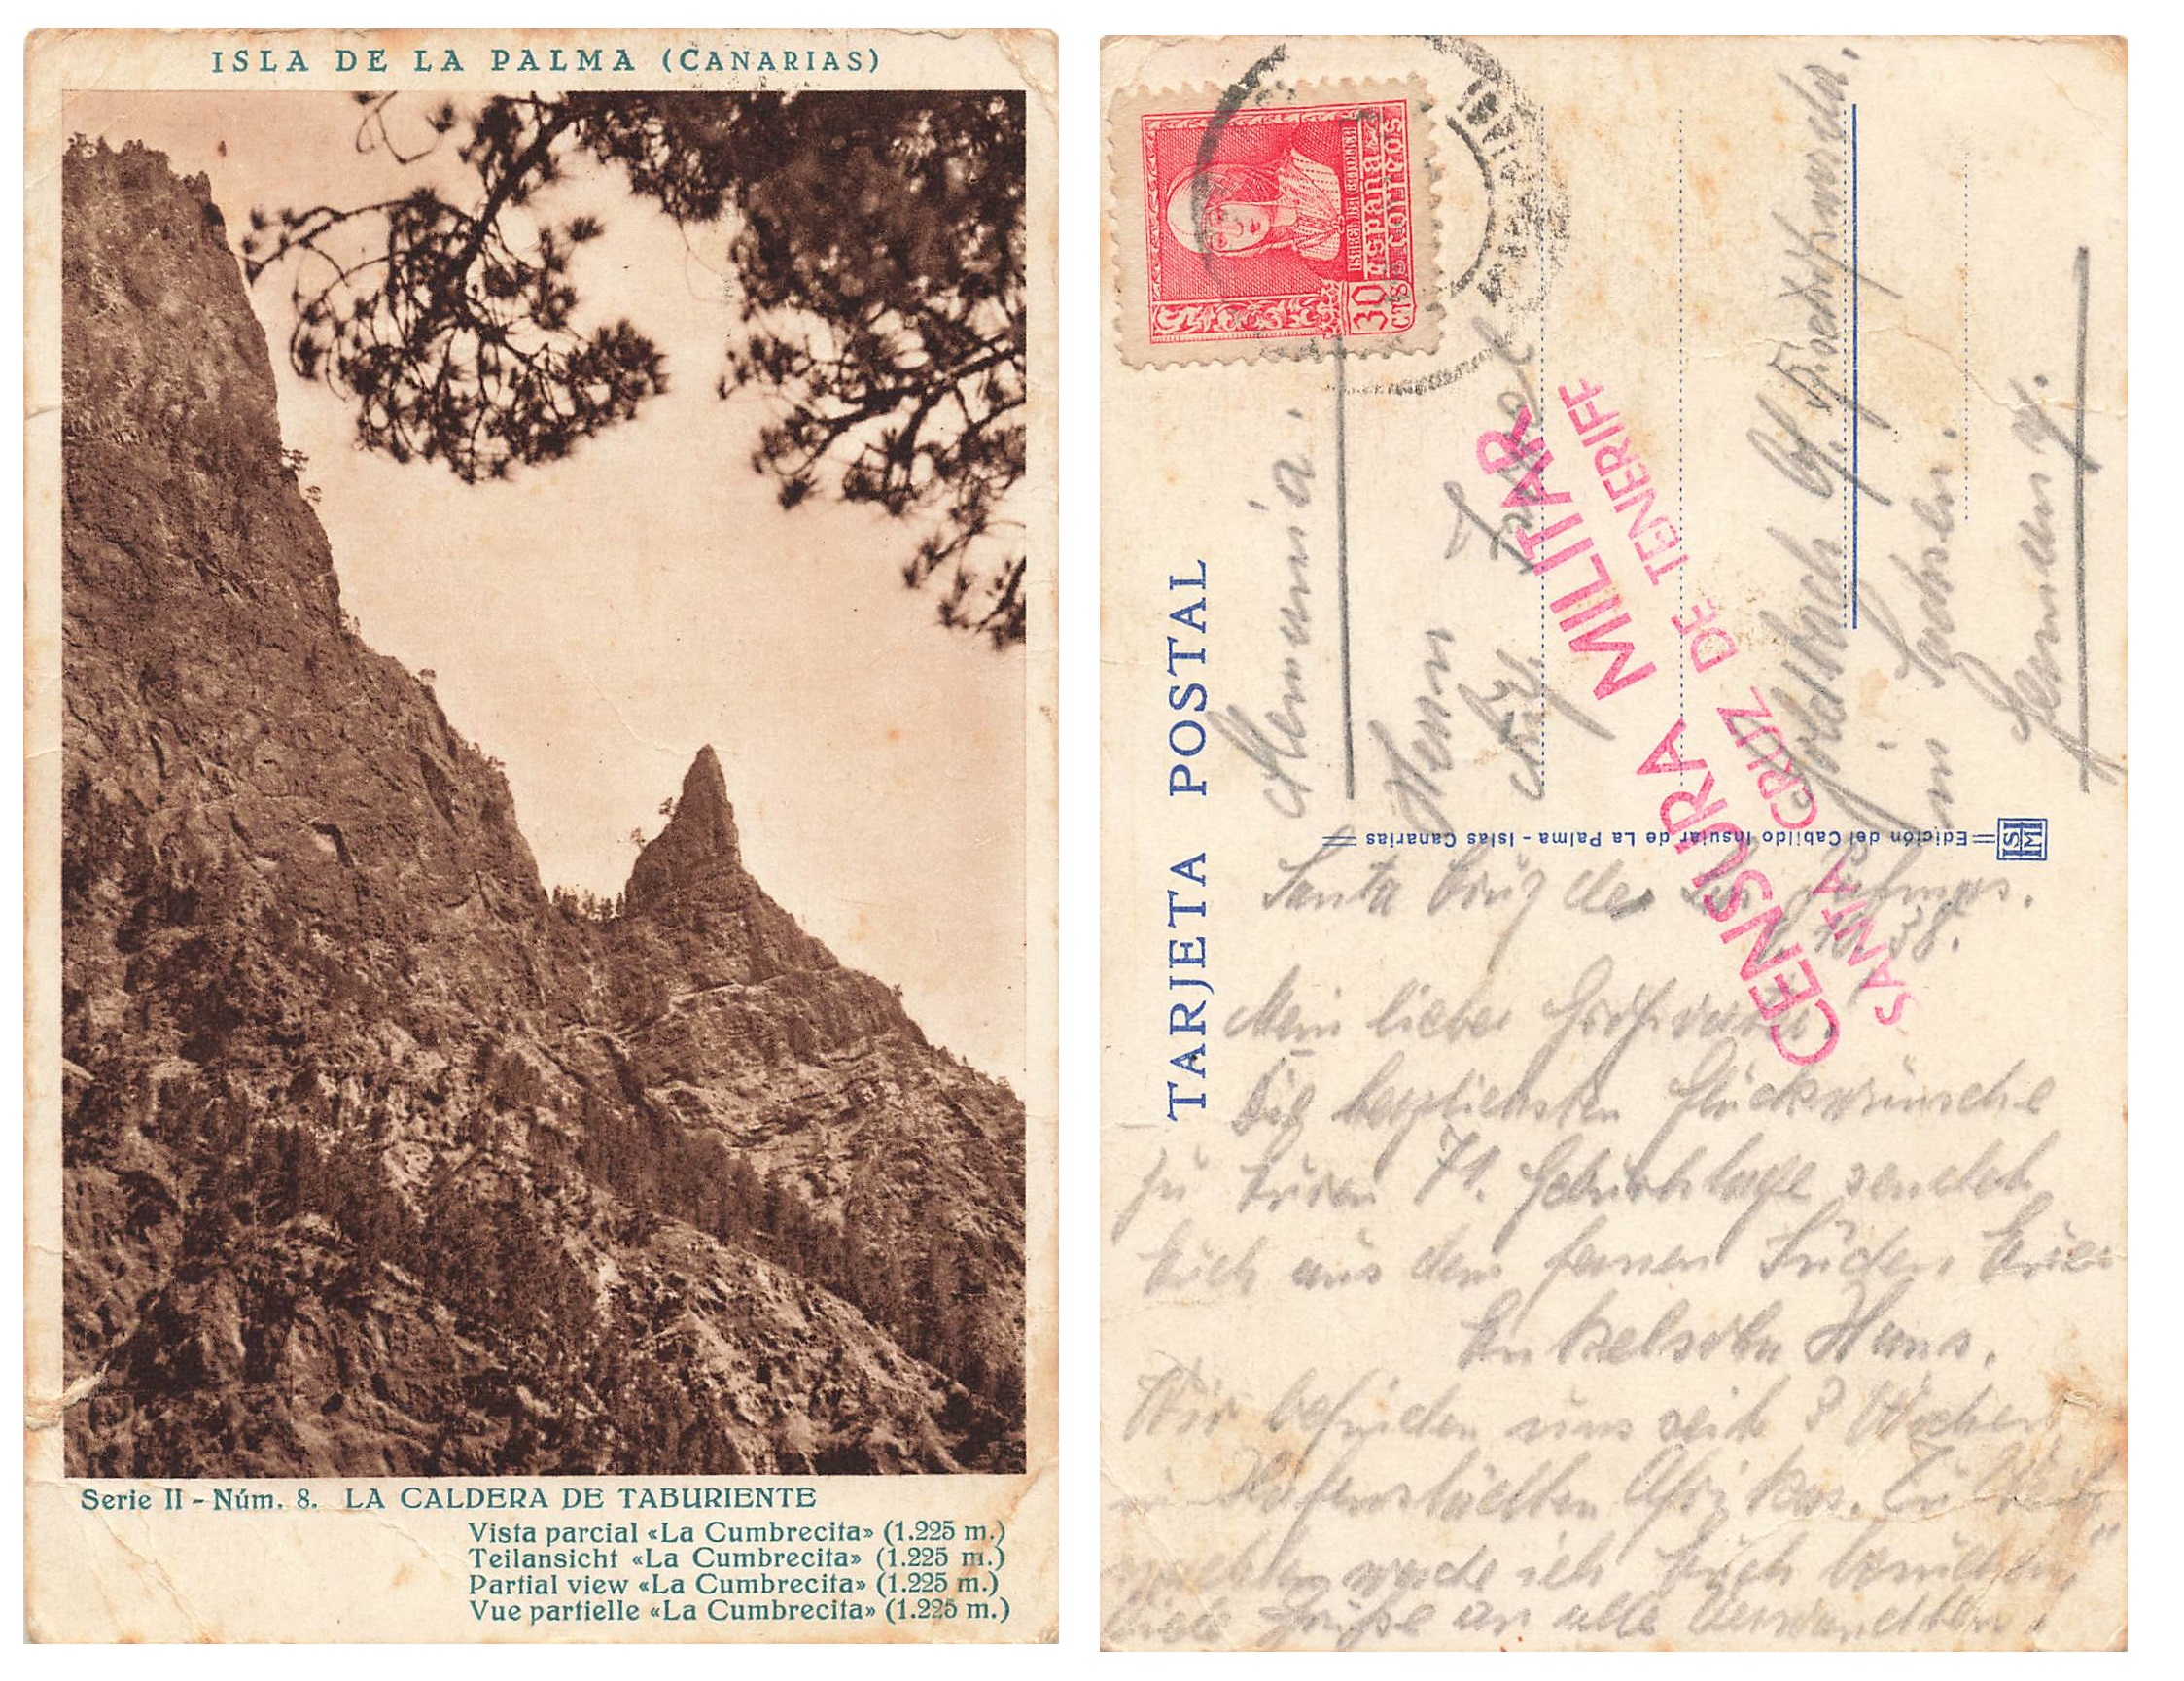 ISLA DE LA PALMA (CANARIAS)
Serie II - Núm. 8. LA CALDERA DE TABURIENTE
Vista parcial «La Cumbrecita» (1.225 m.)
Teilansicht «La Cumbrecita» (1.225 m.)
Partial view «La Cumbrecita» (1.225 m.)
Vue partielle «La Cumbrecita» (1.225 m.)
TARJETA POSTAL
30 CTS
ISABEL LA CATOLICA
españa
correos
CENSURA MILITAR
SANTA CRUZ DE TENERIFE
Edición del Cabildo Insular de La Palma - Islas Canarias
Alemania.
Herrn
Goldbach
in Sachsen.
Germany.
Santa Cruz de
38.
Mein lieber Großvater.
Die herzlichsten Glückwünsche
zu Euren 71. Geburtstage sendet
Euch aus dem fernen Süden Euer
Enkelsohn Hans.
Wir befinden uns seit 3 Wochen
in Hafenstädten Afrikas. Zu
werde ich Euch
viele Grüße an alle Verwandten.